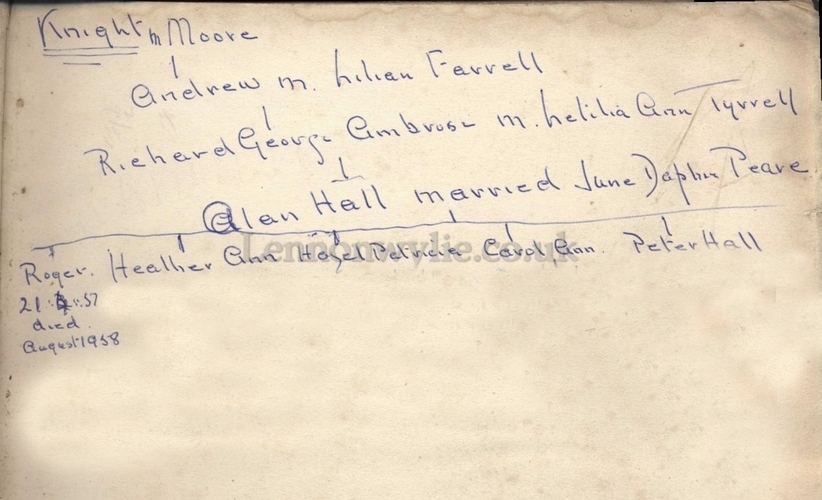 Knight m Moore
Andrew m. Lilian Farrell
Richard George Ambrose m. Letilia Ann Tyrrell
Alan Hall married June Daphne Peare
Roger. Heather Ann Hazel Patricia Carol Ann. Peter Hall
Lennonwylie.co.uk
21. .57
died.
August 1958